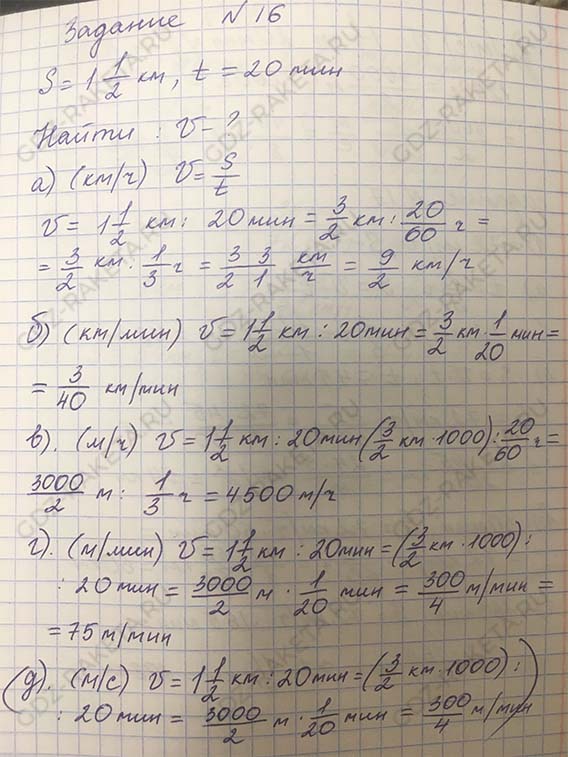 Задание № 16
S = 1 1/2 км, t = 20 мин
Найти : V - ?
а) (км/ч) V = S/t
V = 1 1/2 км : 20 мин = 3/2 км : 20/60 ч =
= 3/2 км · 1/3 ч = 3 3/2 1 км/ч = 9/2 км/ч
б) (км/мин) V = 1 1/2 км : 20 мин = 3/2 км · 1/20 мин =
= 3/40 км/мин
в). (м/ч) V = 1 1/2 км : 20 мин (3/2 км · 1000) : 20/60 ч =
3000/2 м : 1/3 ч = 4500 м/ч
г). (м/мин) V = 1 1/2 км : 20 мин = (3/2 км · 1000) :
: 20 мин = 3000/2 м · 1/20 мин = 300/4 м/мин =
= 75 м/мин
(д). (м/с) V = 1 1/2 км : 20 мин = (3/2 км · 1000) :
: 20 мин = 3000/2 м · 1/20 мин = 300/4 м/мин)
GDZ-RAKETA.RU